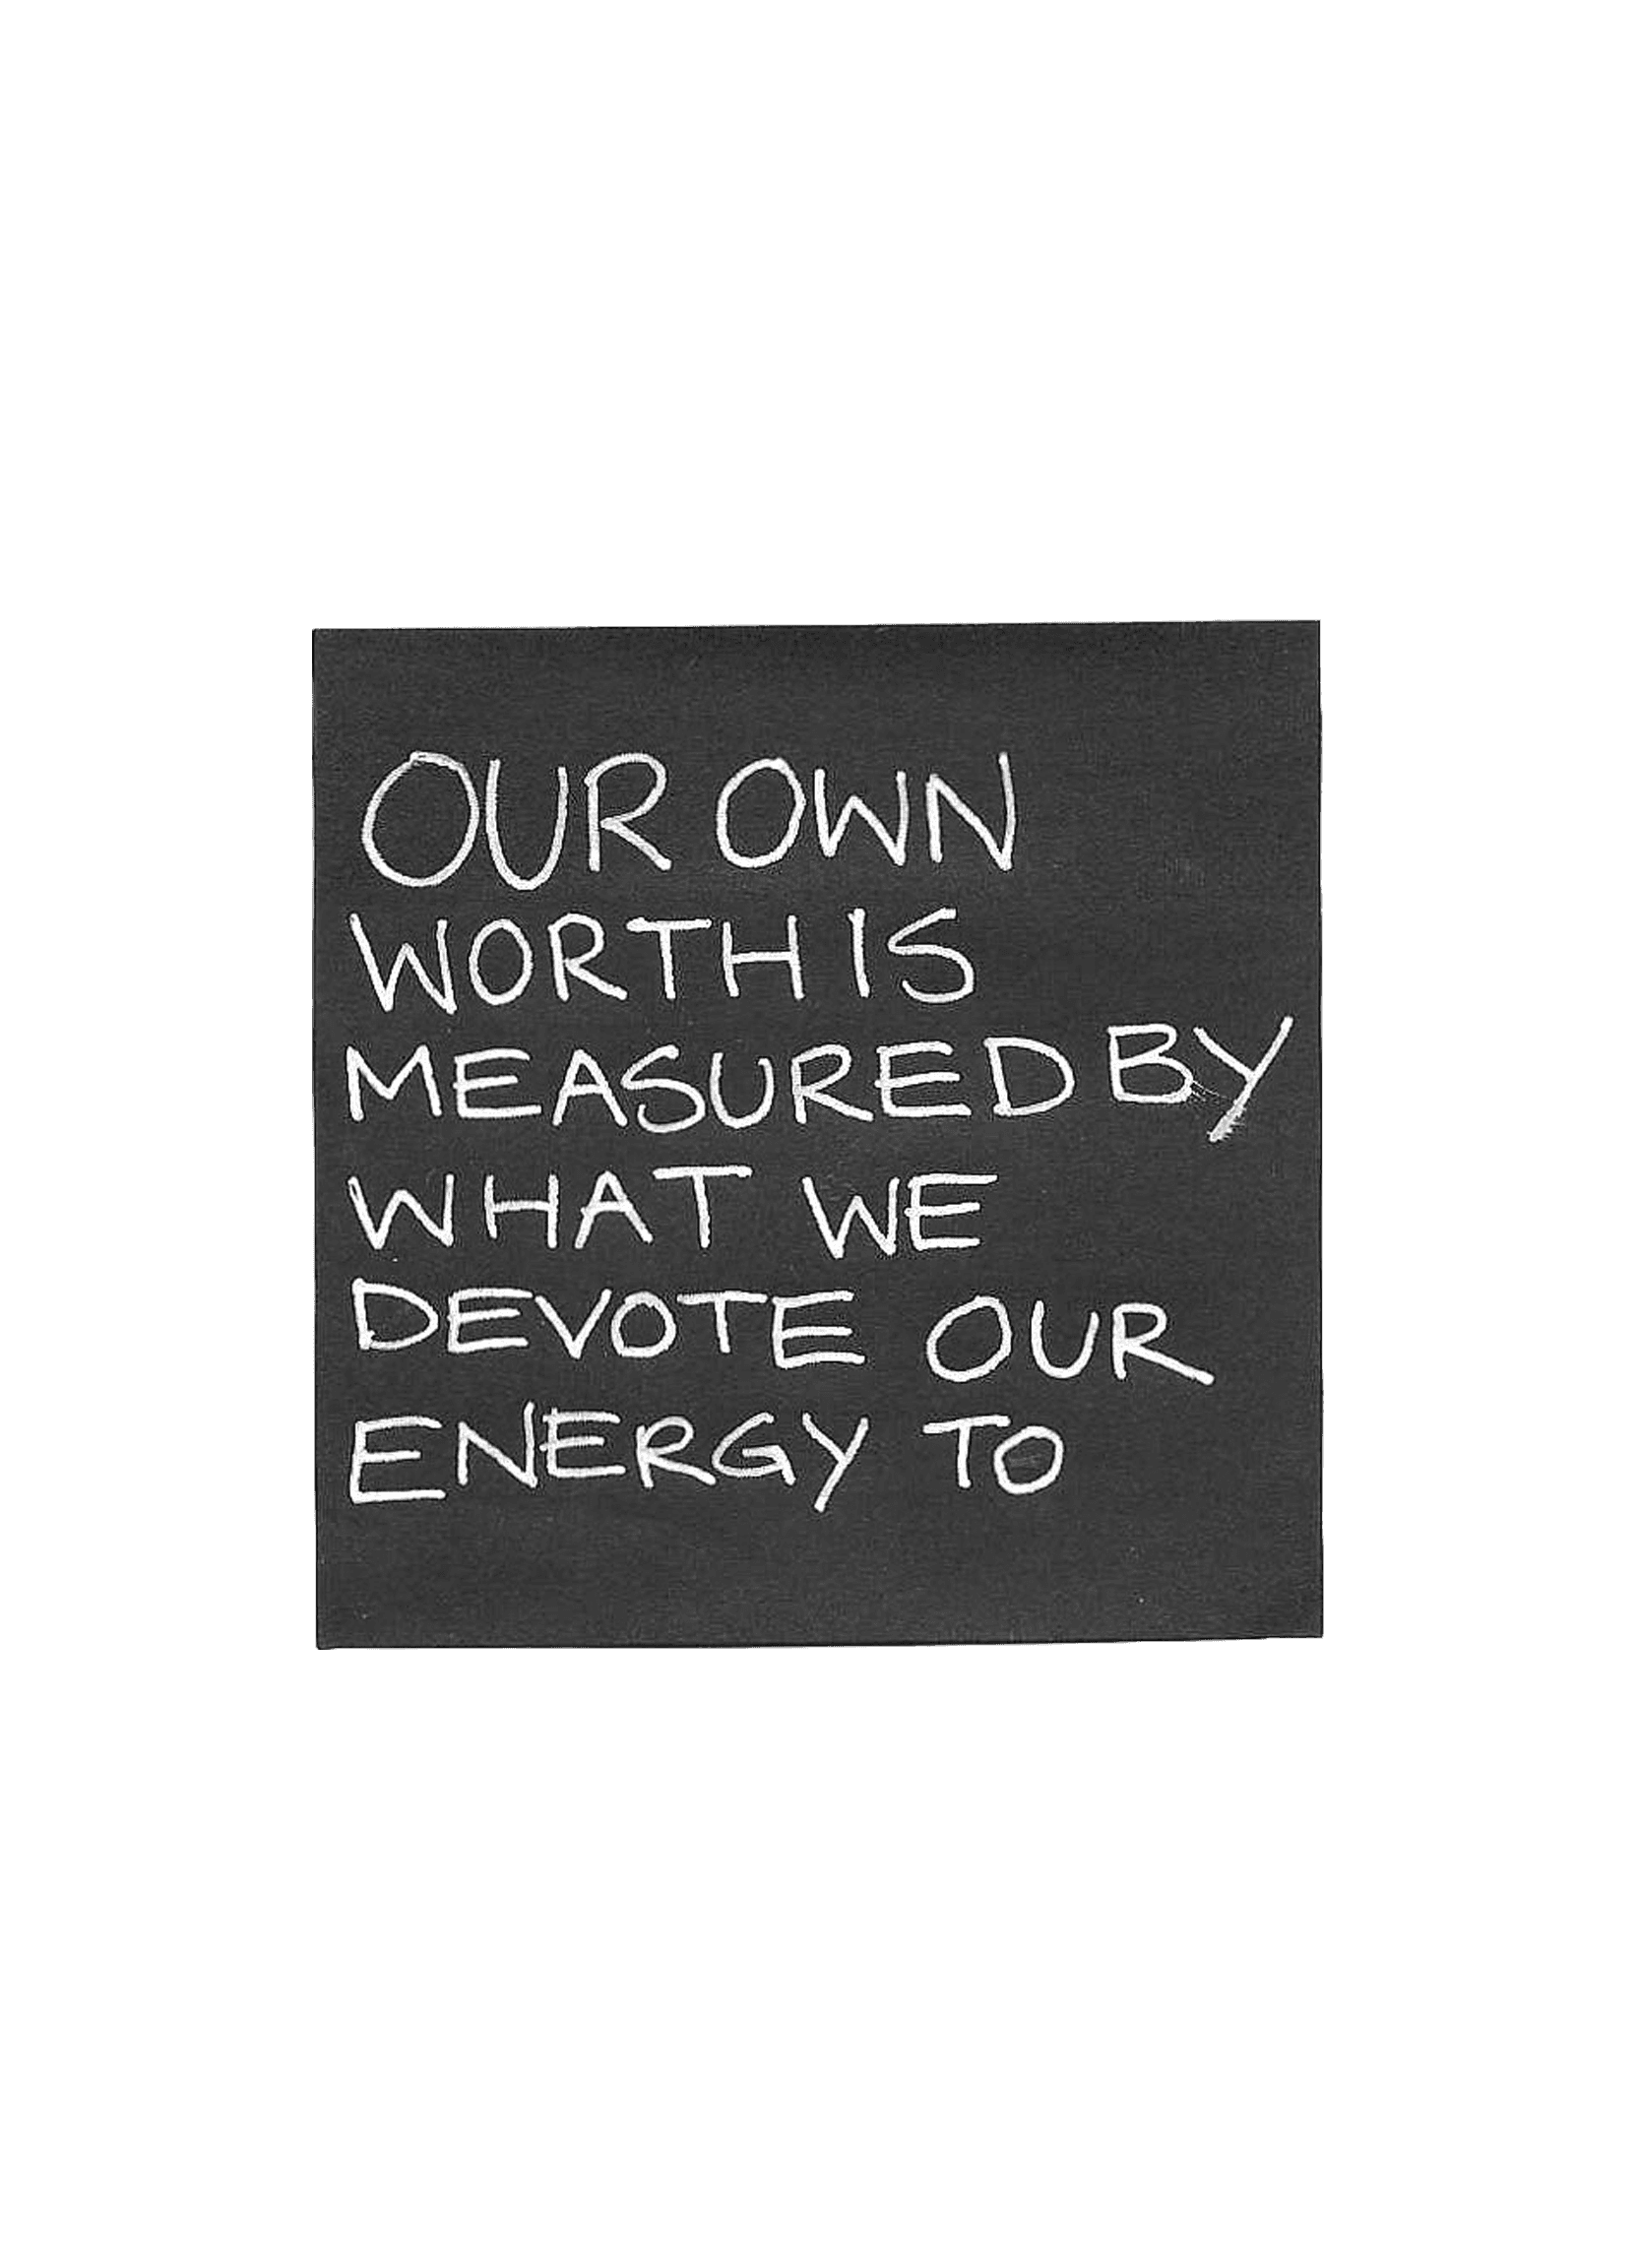 OUR OWN
WORTH IS
MEASURED BY
WHAT WE
DEVOTE OUR
ENERGY TO